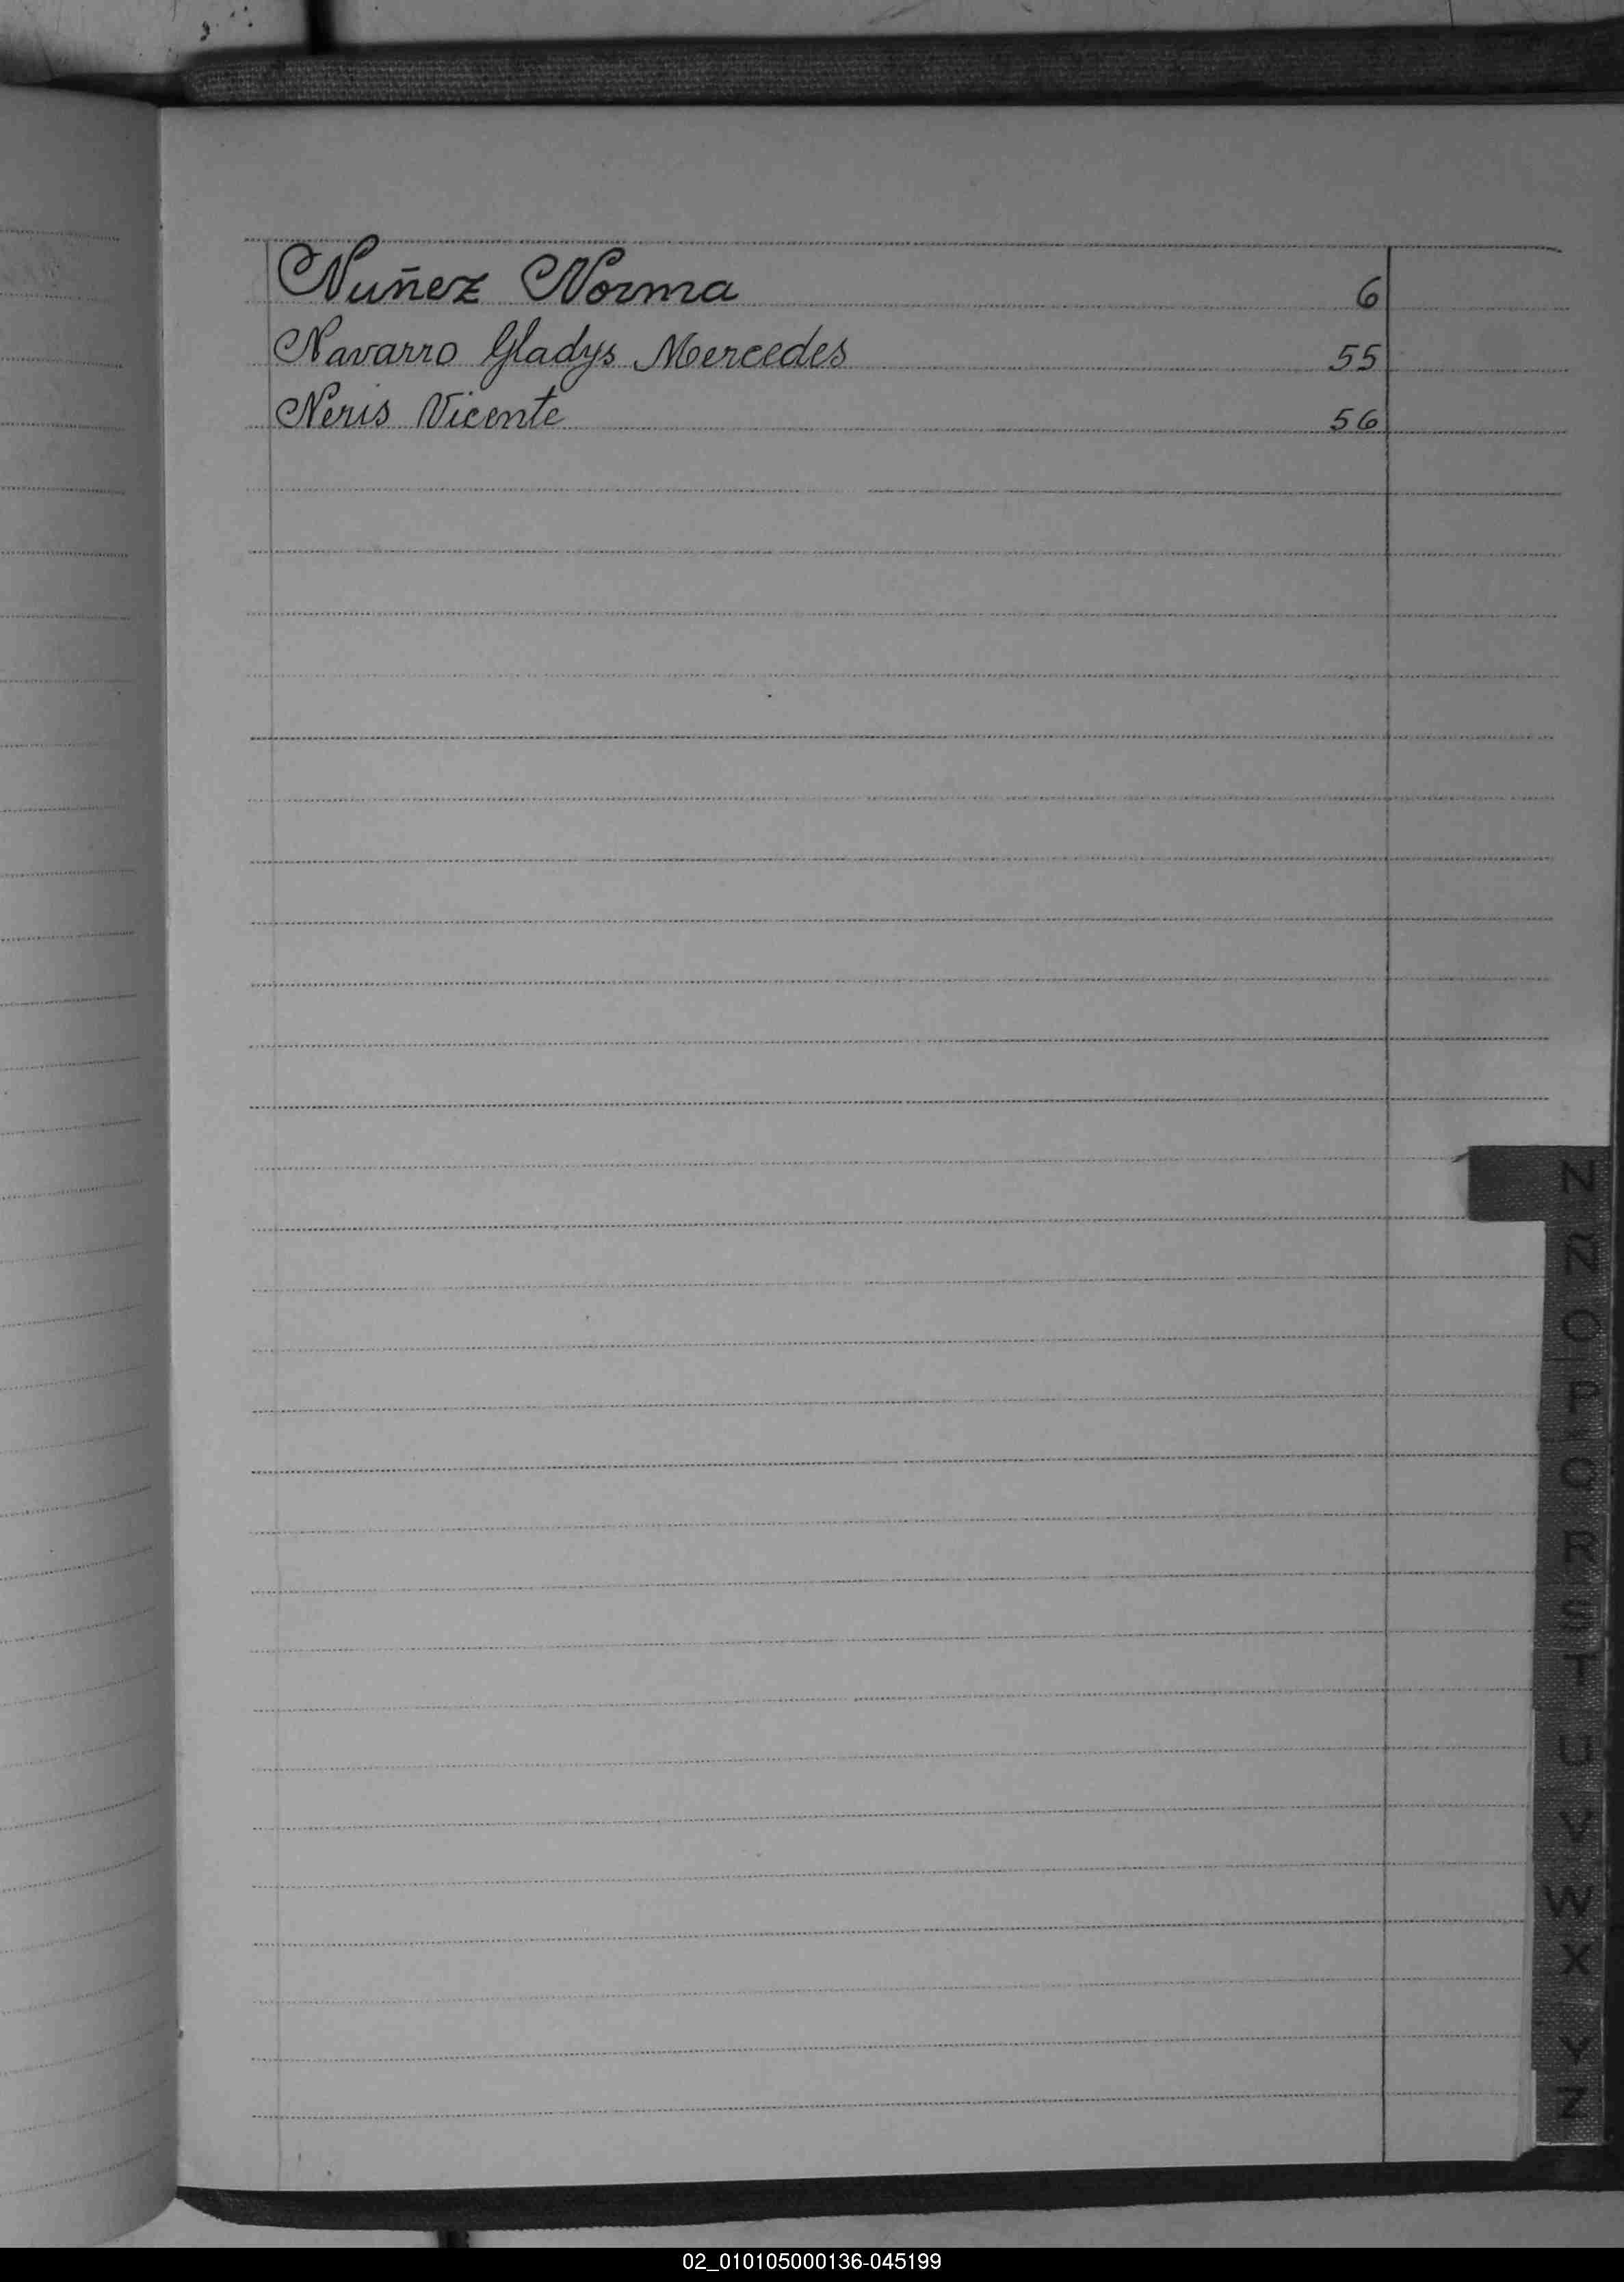 Nuñez Norma 6
Navarro Gladys Mercedes 55
Neris Vicente 56
N
Ñ
O
P
Q
R
S
T
U
V
W
X
Y
Z
02_010105000136-045199